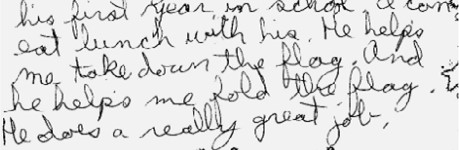 his first year in school. I can
eat lunch with his. He helps
me take down the flag. And
he helps me fold the flag.
He does a really great job.